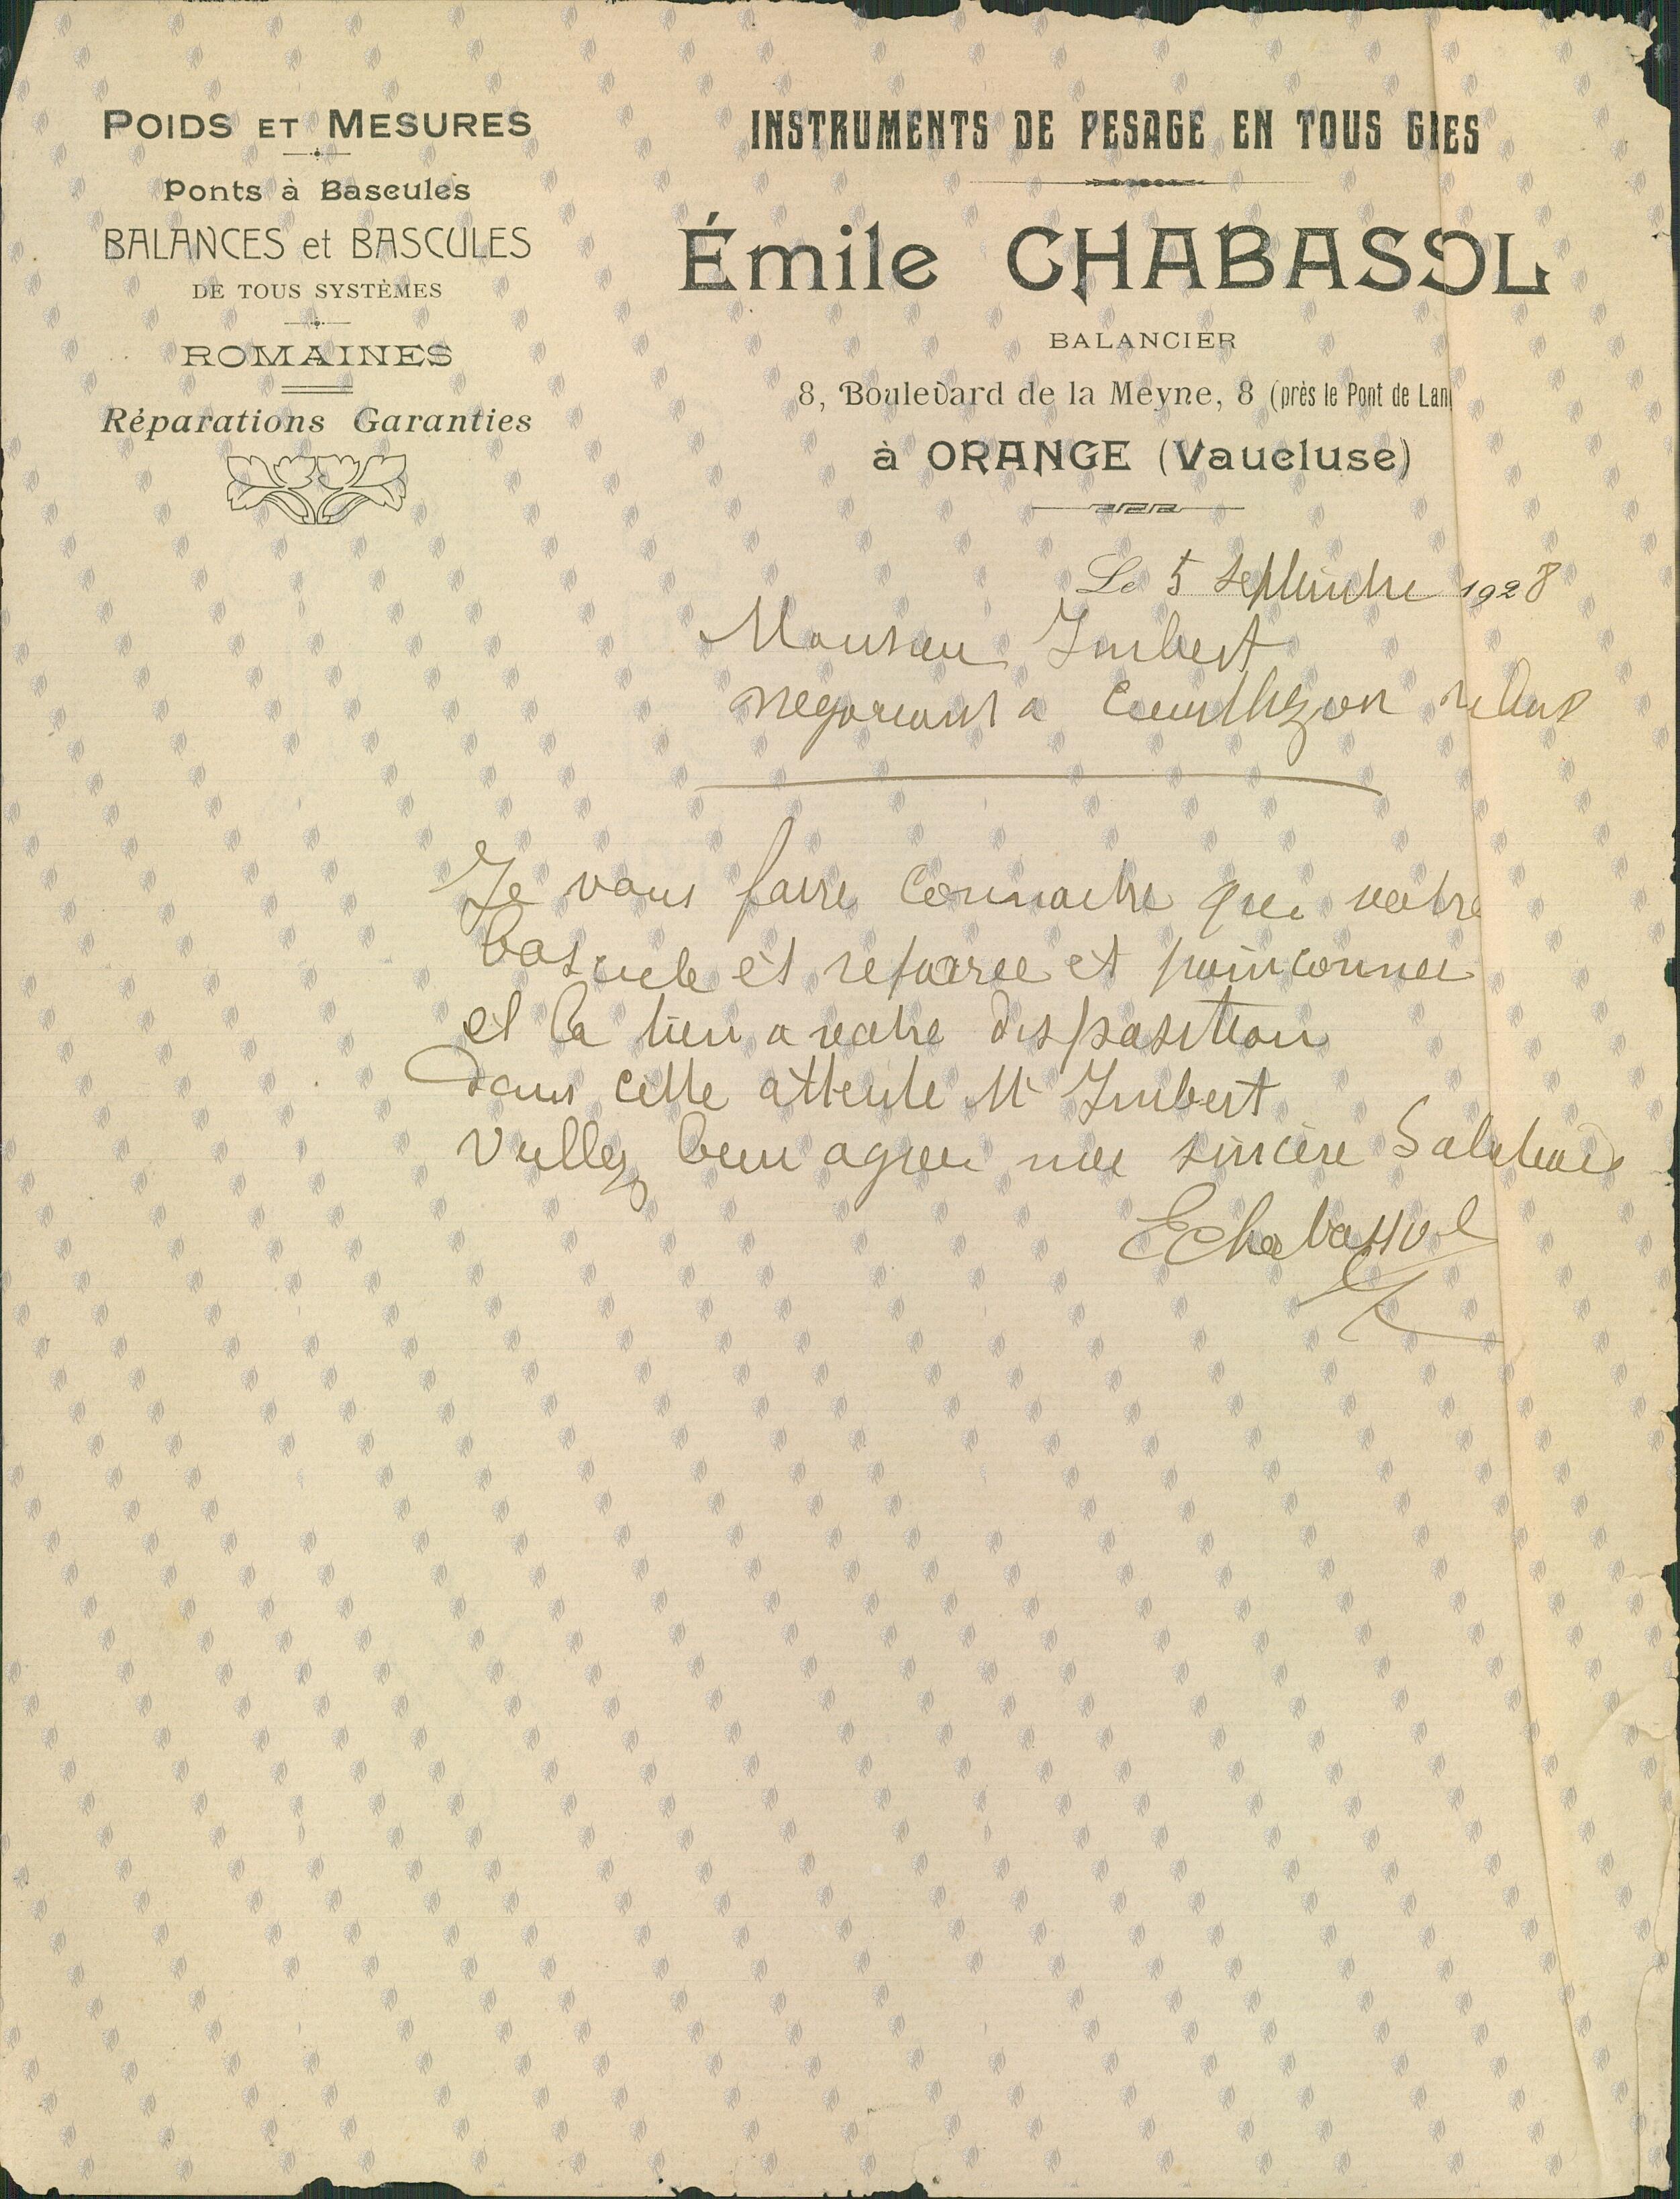 POIDS ET MESURES
Ponts à Bascules
BALANCES et BASCULES
DE TOUS SYSTÈMES
ROMAINES
Réparations Garanties
INSTRUMENTS DE PESAGE EN TOUS G
Émile CHABASSOL
BALANCIER
8, Boulevard de la Meyne, 8 (près le Pont de Lan
à ORANGE (Vaucluse)
Le 5 septembre 1928
Monsieu Imbert
negociant a Courthezon
Je vous faire connaitre que votre
bascule et reparree et poinconnee
et la tien a votre disposition
Dans cette attente Mr Imbert
Vullez bien agreer mee sincere
EChabassol